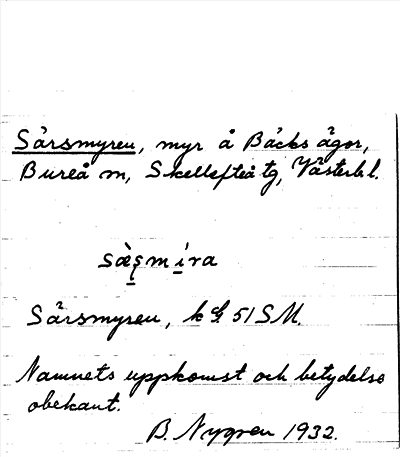 Särsmyren, myr å Bäcks ägor,
Bureå sn, Skellefteå tg, Västerb l.
Särsmyren, k bl. 51 SM.
Namnets uppkomst och betydelse
obekant.
B. Nygren 1932.